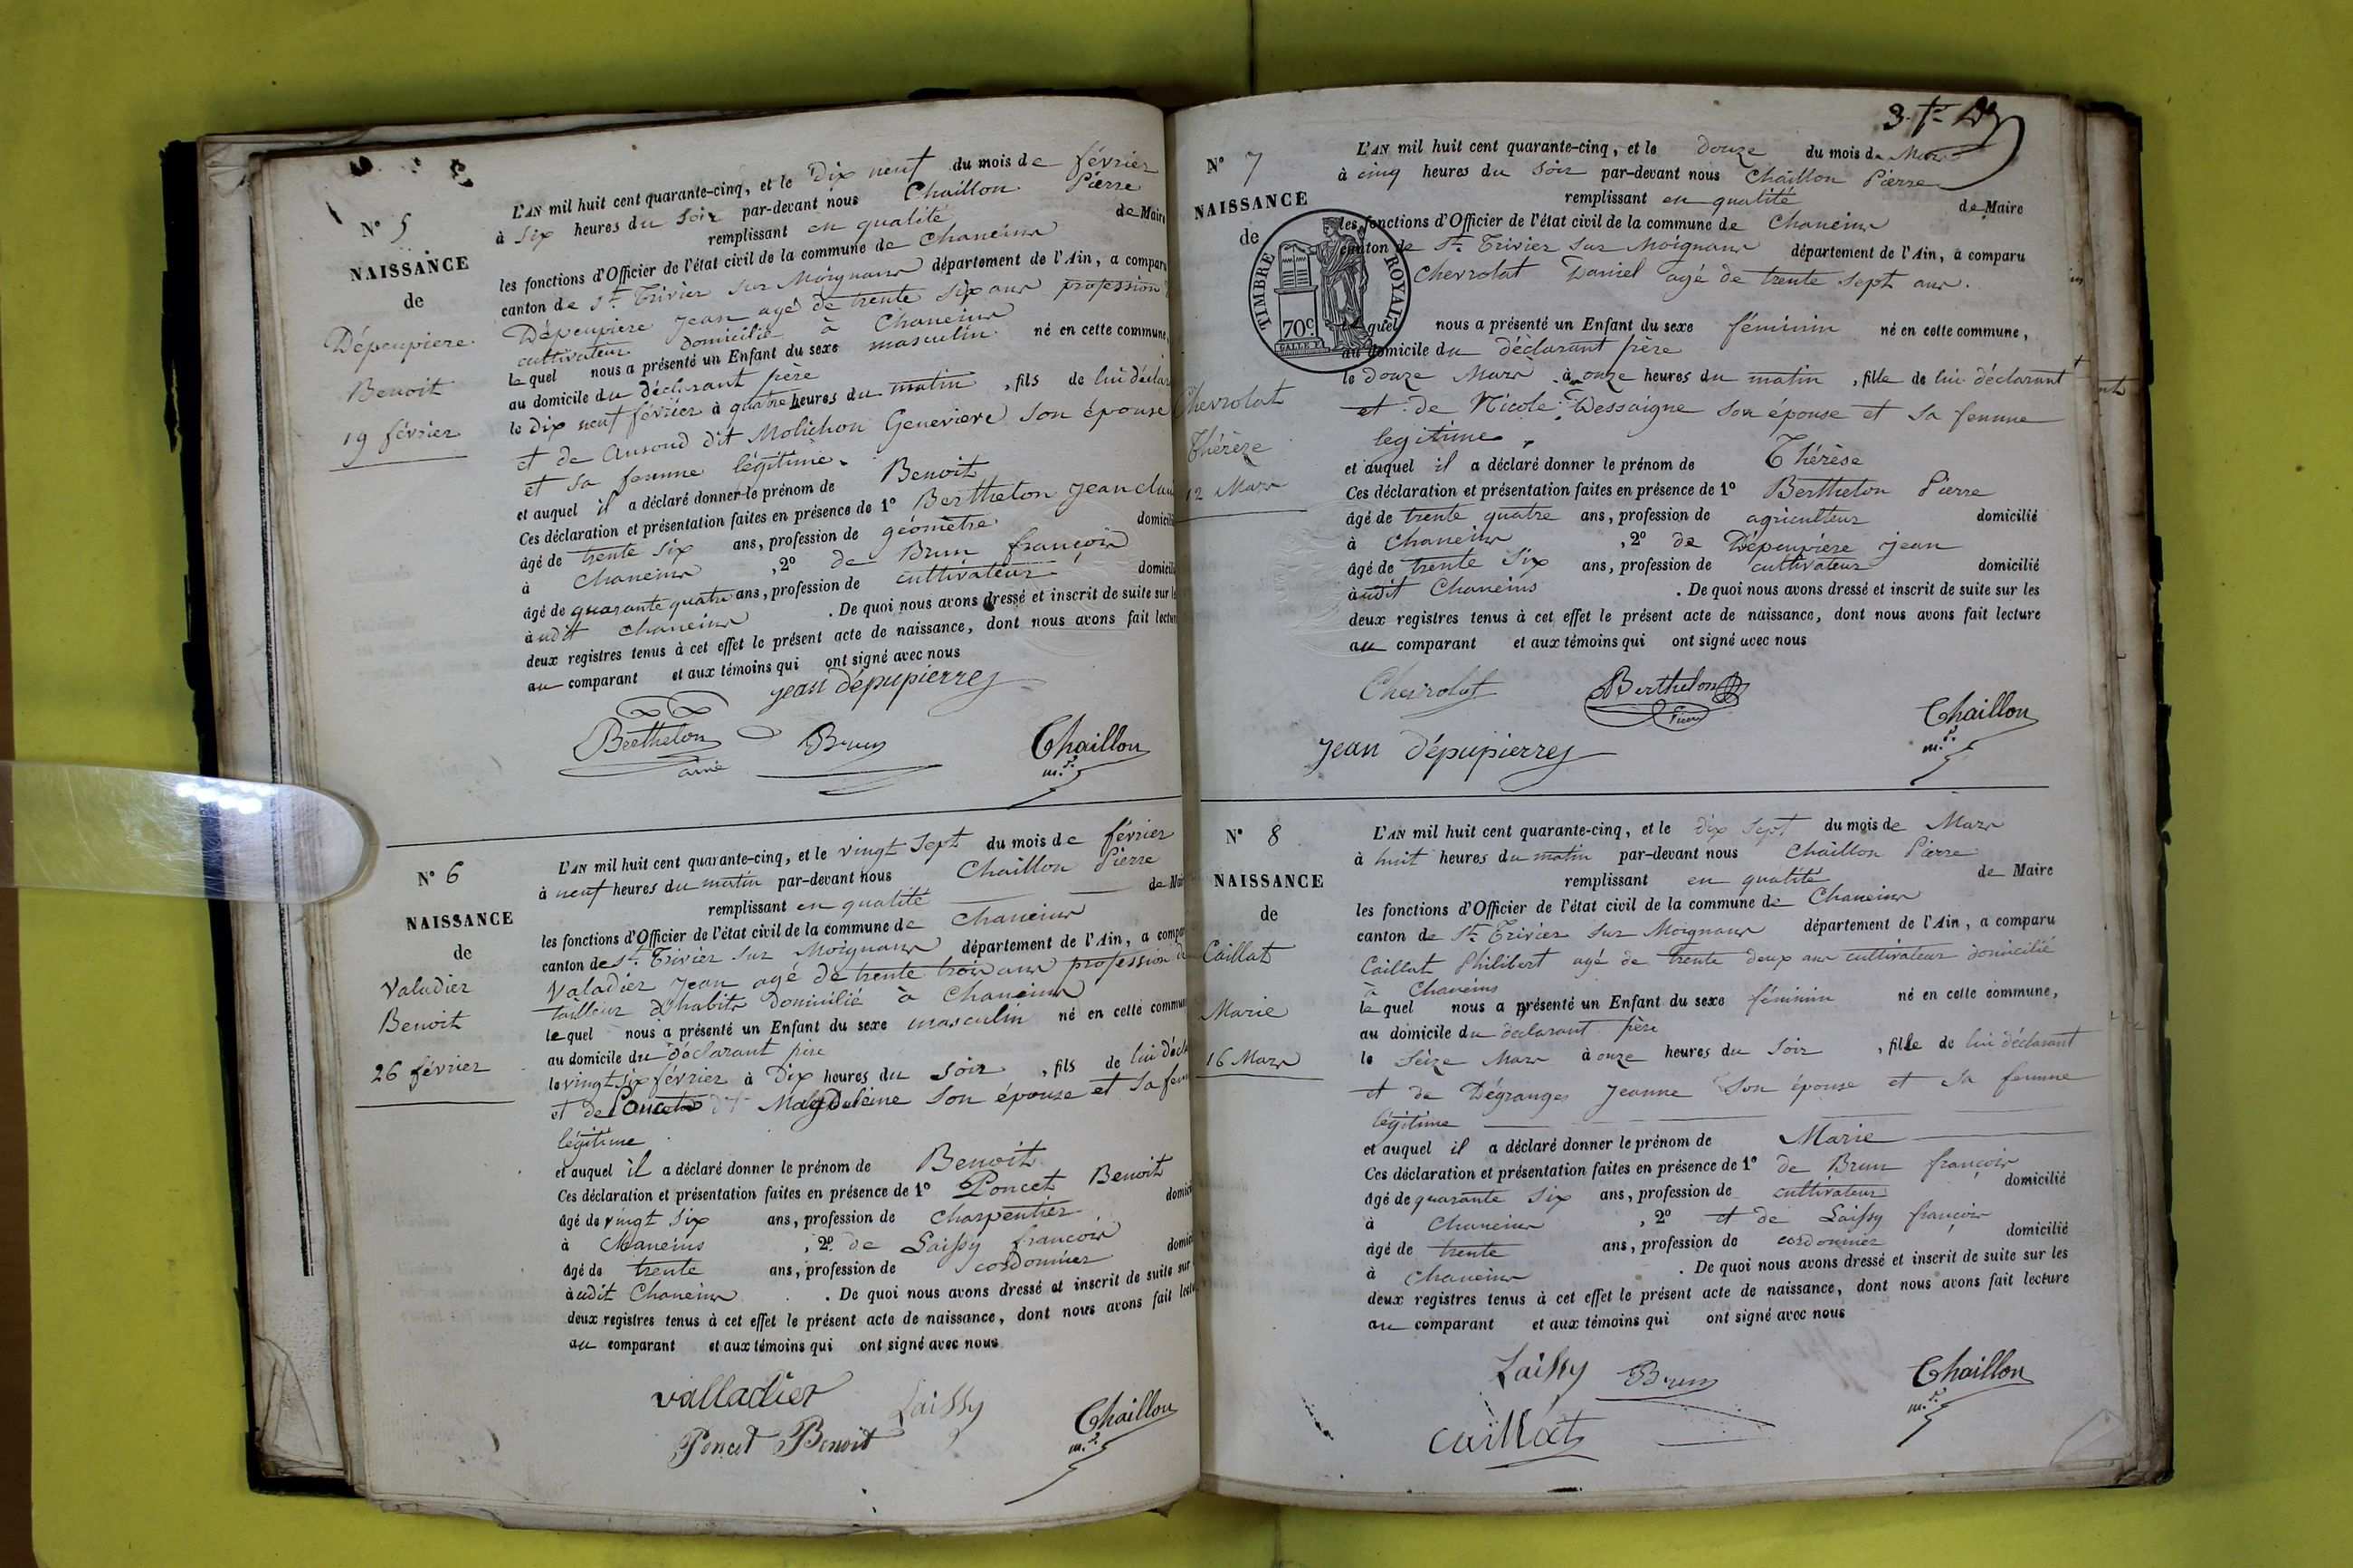 N° 5
NAISSANCE
de
Dépeupiere
Benoit
19 février
L'AN mil huit cent quarante-cinq, et le Dix neuf du mois de février
à six heures du soir par-devant nous Chaillon Pierre
remplissant en qualité de Maire
les fonctions d'Officier de l'état civil de la commune de Chaneins
canton de St. Trivier sur Moignans département de l'Ain, a comparu
Dépeupiere Jean agé de trente six ans profession
cultivateur domicilié à Chaneins
lequel nous a présenté un Enfant du sexe masculin né en cette commune,
au domicile du déclarant père
le dix neuf février à quatre heures du matin, fils de lui déclar
et de dit Molichon Genevieve son épouse
et sa femme légitime.
et auquel il a déclaré donner le prénom de Benoit
Ces déclaration et présentation faites en présence de 1° Berthelon Jean clau
âgé de trente six ans, profession de géomètre domicili
à Chaneins, 2° de Brun françois
âgé de quarante quatre ans, profession de cultivateur domicili
àudit Chaneins. De quoi nous avons dressé et inscrit de suite sur le
deux registres tenus à cet effet le présent acte de naissance, dont nous avons fait lectur
au comparant et aux témoins qui ont signé avec nous
jean dépupierrej
Berthelon Brun Chaillon
ainé m.re
N° 6
NAISSANCE
de
Valadier
Benoit
26 février
L'AN mil huit cent quarante-cinq, et le vingt sept du mois de février
à neuf heures du matin par-devant nous Chaillon Pierre
remplissant en qualité de Mai
les fonctions d'Officier de l'état civil de la commune de Chaneins
canton de St. Trivier sur Moignans département de l'Ain, a compar
Valadier Jean agé de trente trois ans profession de
tailleur d'habits domicilié à Chaneins
lequel nous a présenté un Enfant du sexe masculin né en cette commun
au domicile du déclarant père
le vingt six février à Dix heures du soir, fils de lui décla
et de dit Magdeleine son épouse et sa fem
légitime
et auquel il a déclaré donner le prénom de Benoit
Ces déclaration et présentation faites en présence de 1° Poncet Benoit
âgé de vingt six ans, profession de charpentier domici
à Chaneins, 2° de Laissy françois
âgé de trente ans, profession de cordonnier domici
àudit Chaneins. De quoi nous avons dressé et inscrit de suite sur
deux registres tenus à cet effet le présent acte de naissance, dont nous avons fait lectu
au comparant et aux témoins qui ont signé avec nous
valladier Laissy Chaillon
Poncet Benoit m.re
N° 7
NAISSANCE
de
Chevrolat
Thérèse
12 Mars
TIMBRE ROYAL
70c.
L'AN mil huit cent quarante-cinq, et le douze du mois de Mars
à cinq heures du soir par-devant nous Chaillon Pierre
remplissant en qualité de Maire
les fonctions d'Officier de l'état civil de la commune de Chaneins
canton de St. Trivier sur Moignans département de l'Ain, a comparu
Chevrolat Daniel agé de trente sept ans.
lequel nous a présenté un Enfant du sexe féminin né en cette commune,
au domicile du déclarant père
le douze Mars à onze heures du matin, fille de lui déclarant
et de Nicole Dessaigne son épouse et sa femme
légitime.
et auquel il a déclaré donner le prénom de Thérèse
Ces déclaration et présentation faites en présence de 1° Berthelon Pierre
âgé de trente quatre ans, profession de agriculteur domicilié
à Chaneins, 2° de Dépeupière Jean
âgé de trente six ans, profession de cultivateur domicilié
àudit Chaneins. De quoi nous avons dressé et inscrit de suite sur les
deux registres tenus à cet effet le présent acte de naissance, dont nous avons fait lecture
au comparant et aux témoins qui ont signé avec nous
Chevrolat Berthelon Chaillon
Pierre m.re
Jean dépupierrej
N° 8
NAISSANCE
de
Caillat
Marie
16 Mars
L'AN mil huit cent quarante-cinq, et le dix sept du mois de Mars
à huit heures du matin par-devant nous Chaillon Pierre
remplissant en qualité de Maire
les fonctions d'Officier de l'état civil de la commune de Chaneins
canton de St. Trivier sur Moignans département de l'Ain, a comparu
Caillat Philibert agé de trente deux ans cultivateur domicilié
à Chaneins
lequel nous a présenté un Enfant du sexe féminin né en cette commune,
au domicile du déclarant père
le Seize Mars à onze heures du soir, fille de lui déclarant
et de Dégranges Jeanne son épouse et sa femme
légitime
et auquel il a déclaré donner le prénom de Marie
Ces déclaration et présentation faites en présence de 1° de Brun françois
âgé de quarante six ans, profession de cultivateur domicilié
à Chaneins, 2° et de Laissy françois
âgé de trente ans, profession de cordonnier domicilié
à Chaneins. De quoi nous avons dressé et inscrit de suite sur les
deux registres tenus à cet effet le présent acte de naissance, dont nous avons fait lecture
au comparant et aux témoins qui ont signé avec nous
Laissy Brun Chaillon
caillat m.re